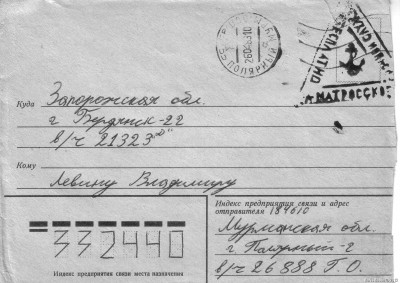 ПОЛЯРНЫЙ
260489 10
БЕСПЛАТНО
МАТРОССКОЕ
Куда Запорожская обл.
г Бердянск-22
в/ч 21323 "Д"
Кому
Левину Владимиру
Индекс предприятия связи и адрес
отправителя 184610
Мурманская обл.
г. Полярный-2
в/ч 26888 Г.О.
332440
Индекс предприятия связи места назначения